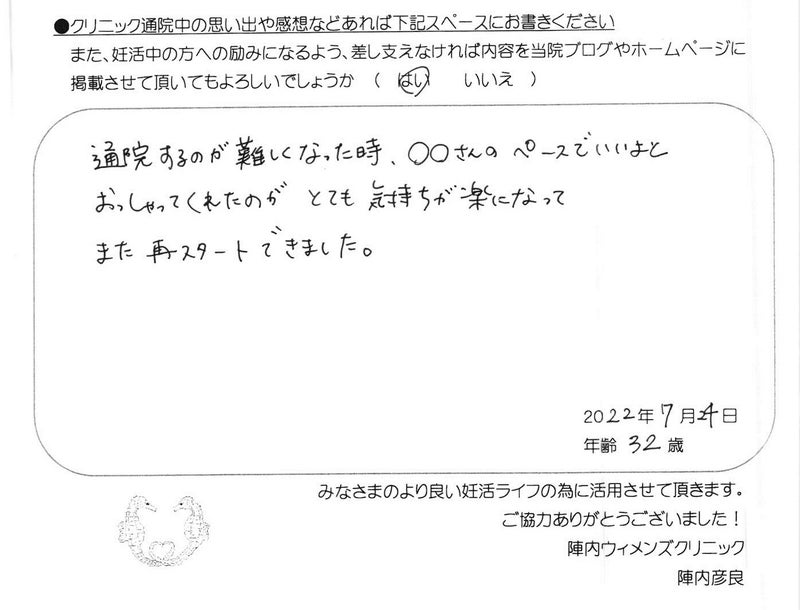 ●クリニック通院中の思い出や感想などあれば下記スペースにお書きください
また、妊活中の方への励みになるよう、差し支えなければ内容を当院ブログやホームページに
掲載させて頂いてもよろしいでしょうか （ はい いいえ ）
通院するのが難しくなった時、〇〇さんの ペースでいいよと
おっしゃってくれたのが とても 気持ちが楽になって
また 再スタートできました。
2022年7月4日
年齢 32 歳
みなさまのより良い妊活ライフの為に活用させて頂きます。
ご協力ありがとうございました！
陣内ウィメンズクリニック
陣内彦良